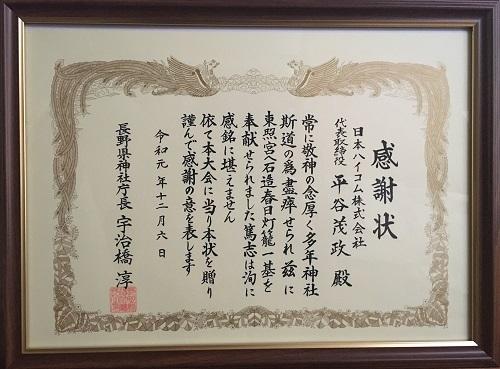 感謝状
日本ハイコム株式会社
代表取締役 平谷茂政 殿
常に敬神の念厚く多年神社
斯道の為盡瘁せられ茲に
東照宮へ石造春日灯籠一基を
奉献せられました篤志は洵に
感銘に堪えません
依て本大会に当り本状を贈り
謹んで感謝の意を表します
令和元年十二月六日
長野県神社庁長 宇治橋 淳